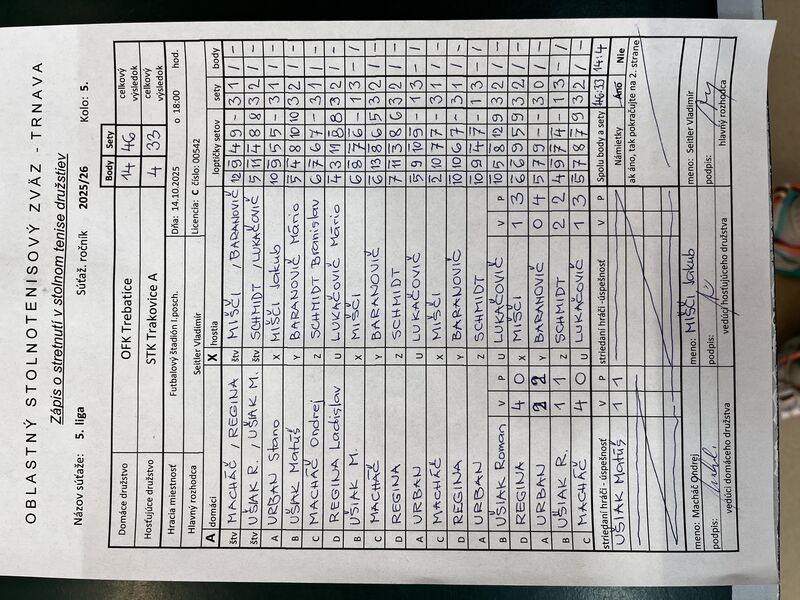 OBLASTNÝ STOLNOTENISOVÝ ZVÄZ - TRNAVA
Zápis o stretnutí v stolnom tenise družstiev
Názov súťaže: 5. liga Súťaž. ročník 2025/26 Kolo: 5.
Body Sety
Domáce družstvo OFK Trebatice 14 46 celkový výsledok
Hosťujúce družstvo STK Trakovice A 4 33 celkový výsledok
Hracia miestnosť Futbalový štadión I.posch. Dňa: 14.10.2025 o 18:00 hod.
Hlavný rozhodca Seitler Vladimír Licencia: C číslo: 00542
A domáci X hostia loptičky setov sety body
štv MACHÁČ / REGINA štv MIŠČI / BARANOVIČ 12 9 4 9 - 3 1 / -
štv UŠIAK R. / UŠIAK M. štv SCHMIDT / LUKAČOVIČ 5 11 4 8 8 3 2 / -
A URBAN Stano X MIŠČI Jakub 10 9 5 5 - 3 1 / -
B UŠIAK Matúš Y BARANOVIČ Mário 5 4 8 10 10 3 2 / -
C MACHÁČ Ondrej Z SCHMIDT Branislav 6 7 6 7 - 3 1 / -
D REGINA Ladislav U LUKAČOVIČ Mário 4 3 11 8 8 3 2 / -
B UŠIAK M. X MIŠČI 6 8 7 6 - 1 3 - /
C MACHÁČ Y BARANOVIČ 6 13 8 6 5 3 2 / -
D REGINA Z SCHMIDT 7 11 3 8 6 3 2 / -
A URBAN U LUKAČOVIČ 5 9 10 9 - 1 3 - /
C MACHÁČ X MIŠČI 2 10 7 7 - 3 1 / -
D REGINA Y BARANOVIČ 10 10 6 7 - 3 1 / -
A URBAN Z SCHMIDT 10 9 4 7 - 1 3 - /
B UŠIAK Roman V P U LUKAČOVIČ V P 10 5 8 12 9 3 2 / -
D REGINA 4 0 X MIŠČI 1 3 6 6 9 5 9 3 2 / -
A URBAN 2 2 Y BARANOVIČ 0 4 5 7 9 - - 3 0 / -
B UŠIAK R. 1 1 Z SCHMIDT 2 2 4 9 7 4 - 1 3 - /
C MACHÁČ 4 0 U LUKAČOVIČ 1 3 5 7 8 7 9 3 2 / -
striedaní hráči - úspešnosť V P striedaní hráči - úspešnosť V P Spolu body a sety 46:33 14:4
UŠIAK Matúš 1 1 Námietky Áno Nie
ak áno, tak pokračujte na 2. strane
meno: Macháč Ondrej meno: MIŠČI Jakub meno: Seitler Vladimír
podpis: podpis: podpis:
vedúci domáceho družstva vedúci hosťujúceho družstva hlavný rozhodca